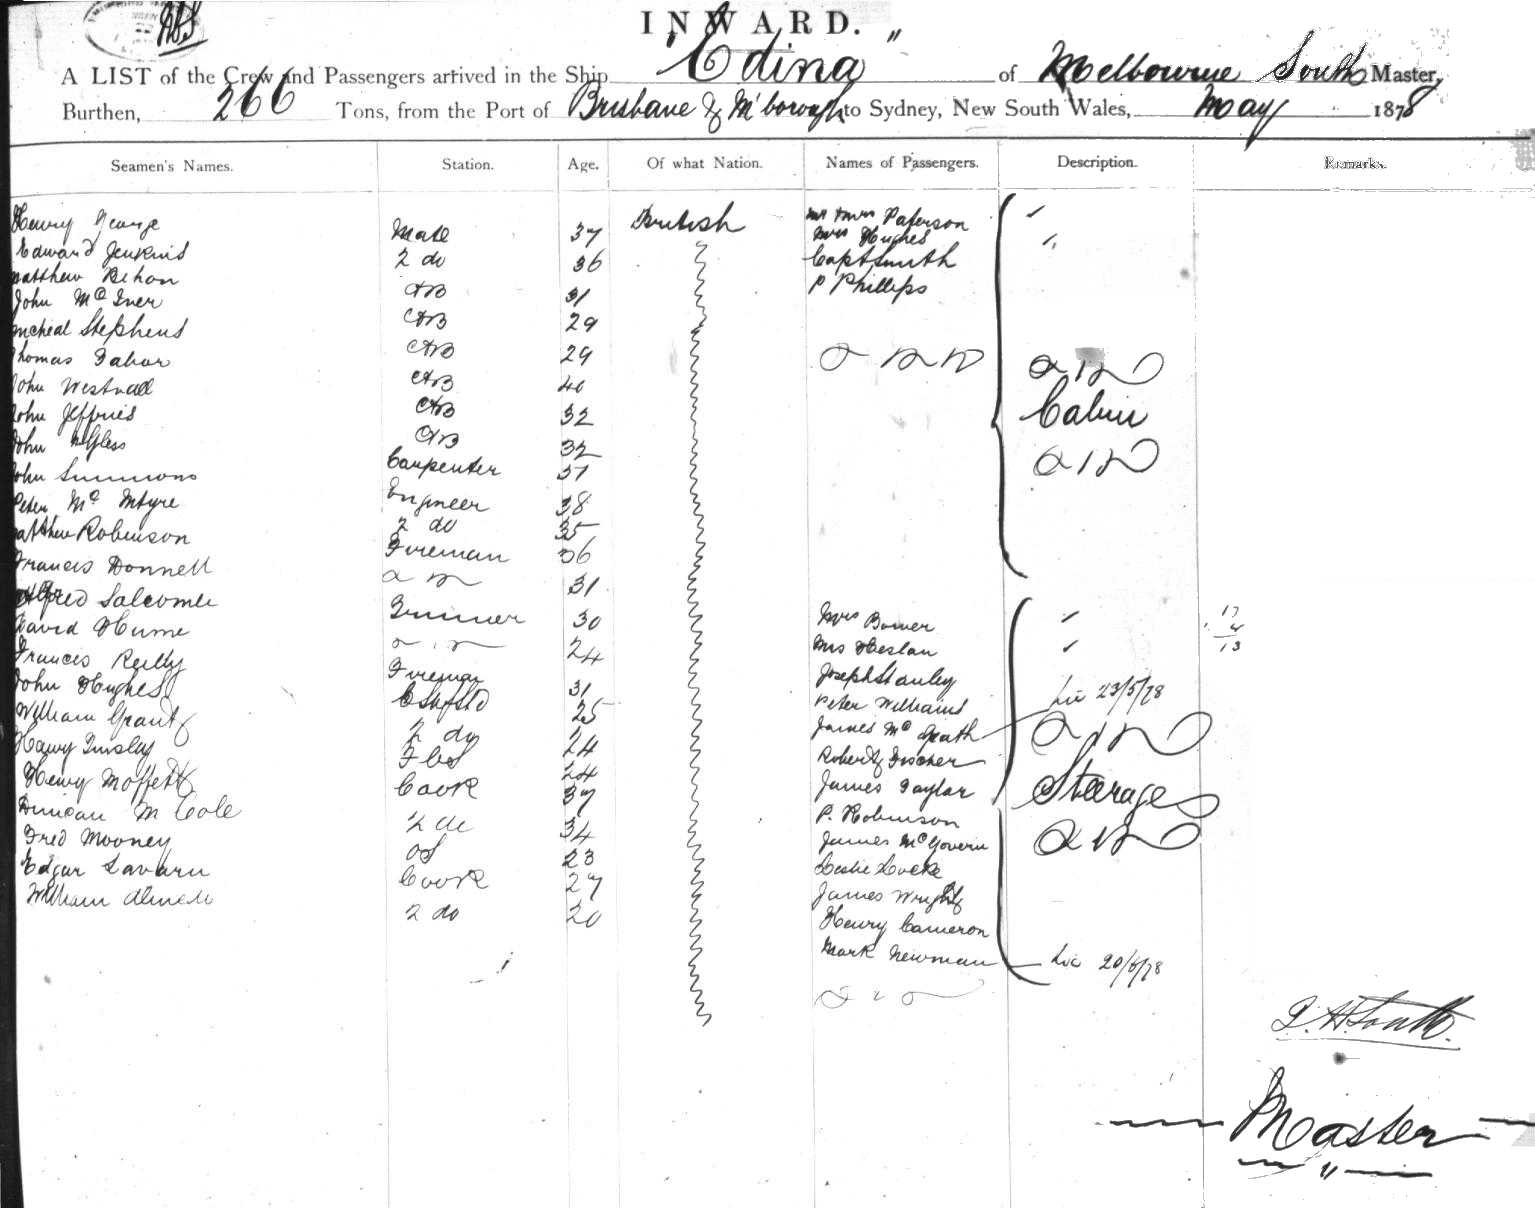 INWARD.
A LIST of the Crew and Passengers arrived in the Ship "Edina" of Melbourne South Master,
Burthen, 266 Tons, from the Port of Brisbane & M'borough to Sydney, New South Wales, May 1878
Seamen's Names. Station. Age. Of what Nation. Names of Passengers. Description. Remarks.
Henry George Mate 37 British
Edward Jenkins 2 do 36
Matthew AB 31
John McIver AB 29
Micheal Stephens AB 29
Thomas AB 40
John Westnall AB 32
John Jeffries AB 32
John Carpenter 37
John Simmons Engineer 38
Peter Mc Intyre 2 do 35
Matthew Robinson Fireman 36
Francis Donnell 31
Alfred Salcombe 30
David Hume 24
Frances Reilly Fireman 31
John Hughes 25
William Grant 2 do 24
Henry Tinsley 24
Henry Moffett Cook 37
Duncan M Cole 2 do 34
Fred Mooney OS 23
Edgar Cook 27
William 2 do 20
Mr & Mrs Paterson
Mrs Hughes
Capt Smith
P Phillips
Cabin
Mrs
Mrs Heslan
Joseph Stanley
Peter Williams
James Mc Grath 23/5/78
Robert Fischer
James Taylor
Steerage
P. Robinson
James McGovern
Leslie Locke
James Wright
Henry Cameron
Mark Newman 20/5/78
17
4
13
Master